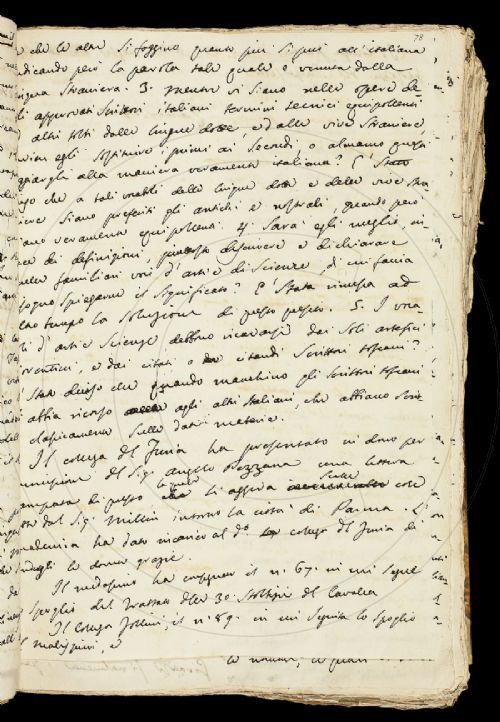 78
e che le altre si foggino quanto più si può all'italiana
dicando però la parola tale quale è venuta dalla
lingua straniera. 3. mentre vi siano nelle opere de
gli approvati Scrittori italiani termini tecnici equipollenti
altri tolti dalle lingue dotte, e dalle vive straniere,
egli sostituire i primi ai secondi, o almeno
alla maniera veramente italiana? E' stato
che a tali vocaboli delle lingue dotte e delle vive stra
niere siano preferiti gli antichi e nostrali, quando però
siano veramente equipollenti. 4. Sarà egli meglio, in
vece di definizioni, descrivere e dichiarare
quelle familiari voci d'arti e di Scienze, di cui faccia
bisogno spiegarne il significato? E' stata rimessa ad
altro tempo la soluzione di questo quesito. 5. I voca
boli d'arti e Scienze debbono ricavarsi dai soli artefici
fiorentini, e dai citati o citandi Scrittori toscani?
E' Stato deciso che quando manchino gli Scrittori toscani
si abbia ricorso agli altri italiani, che abbiano scritto
classicamente sulle date materie.
Il collega Del Furia ha presentato in dono per
commissione del Sig. Angelo Pezzana una lettera
stampata di questo la quale si aggira sulle cose
dal Sig. Millin intorno la città di Parma. L'
Accademia ha dato incarico al d.o collega Del Furia di
le dovute grazie.
Il medesimo ha consegnato il n. 67. in cui segue
lo spoglio del Trattato delle 30. Stoltizie del Cavalca
Il collega Follini, il n. 89. in cui seguita lo spoglio
del Malispini, e